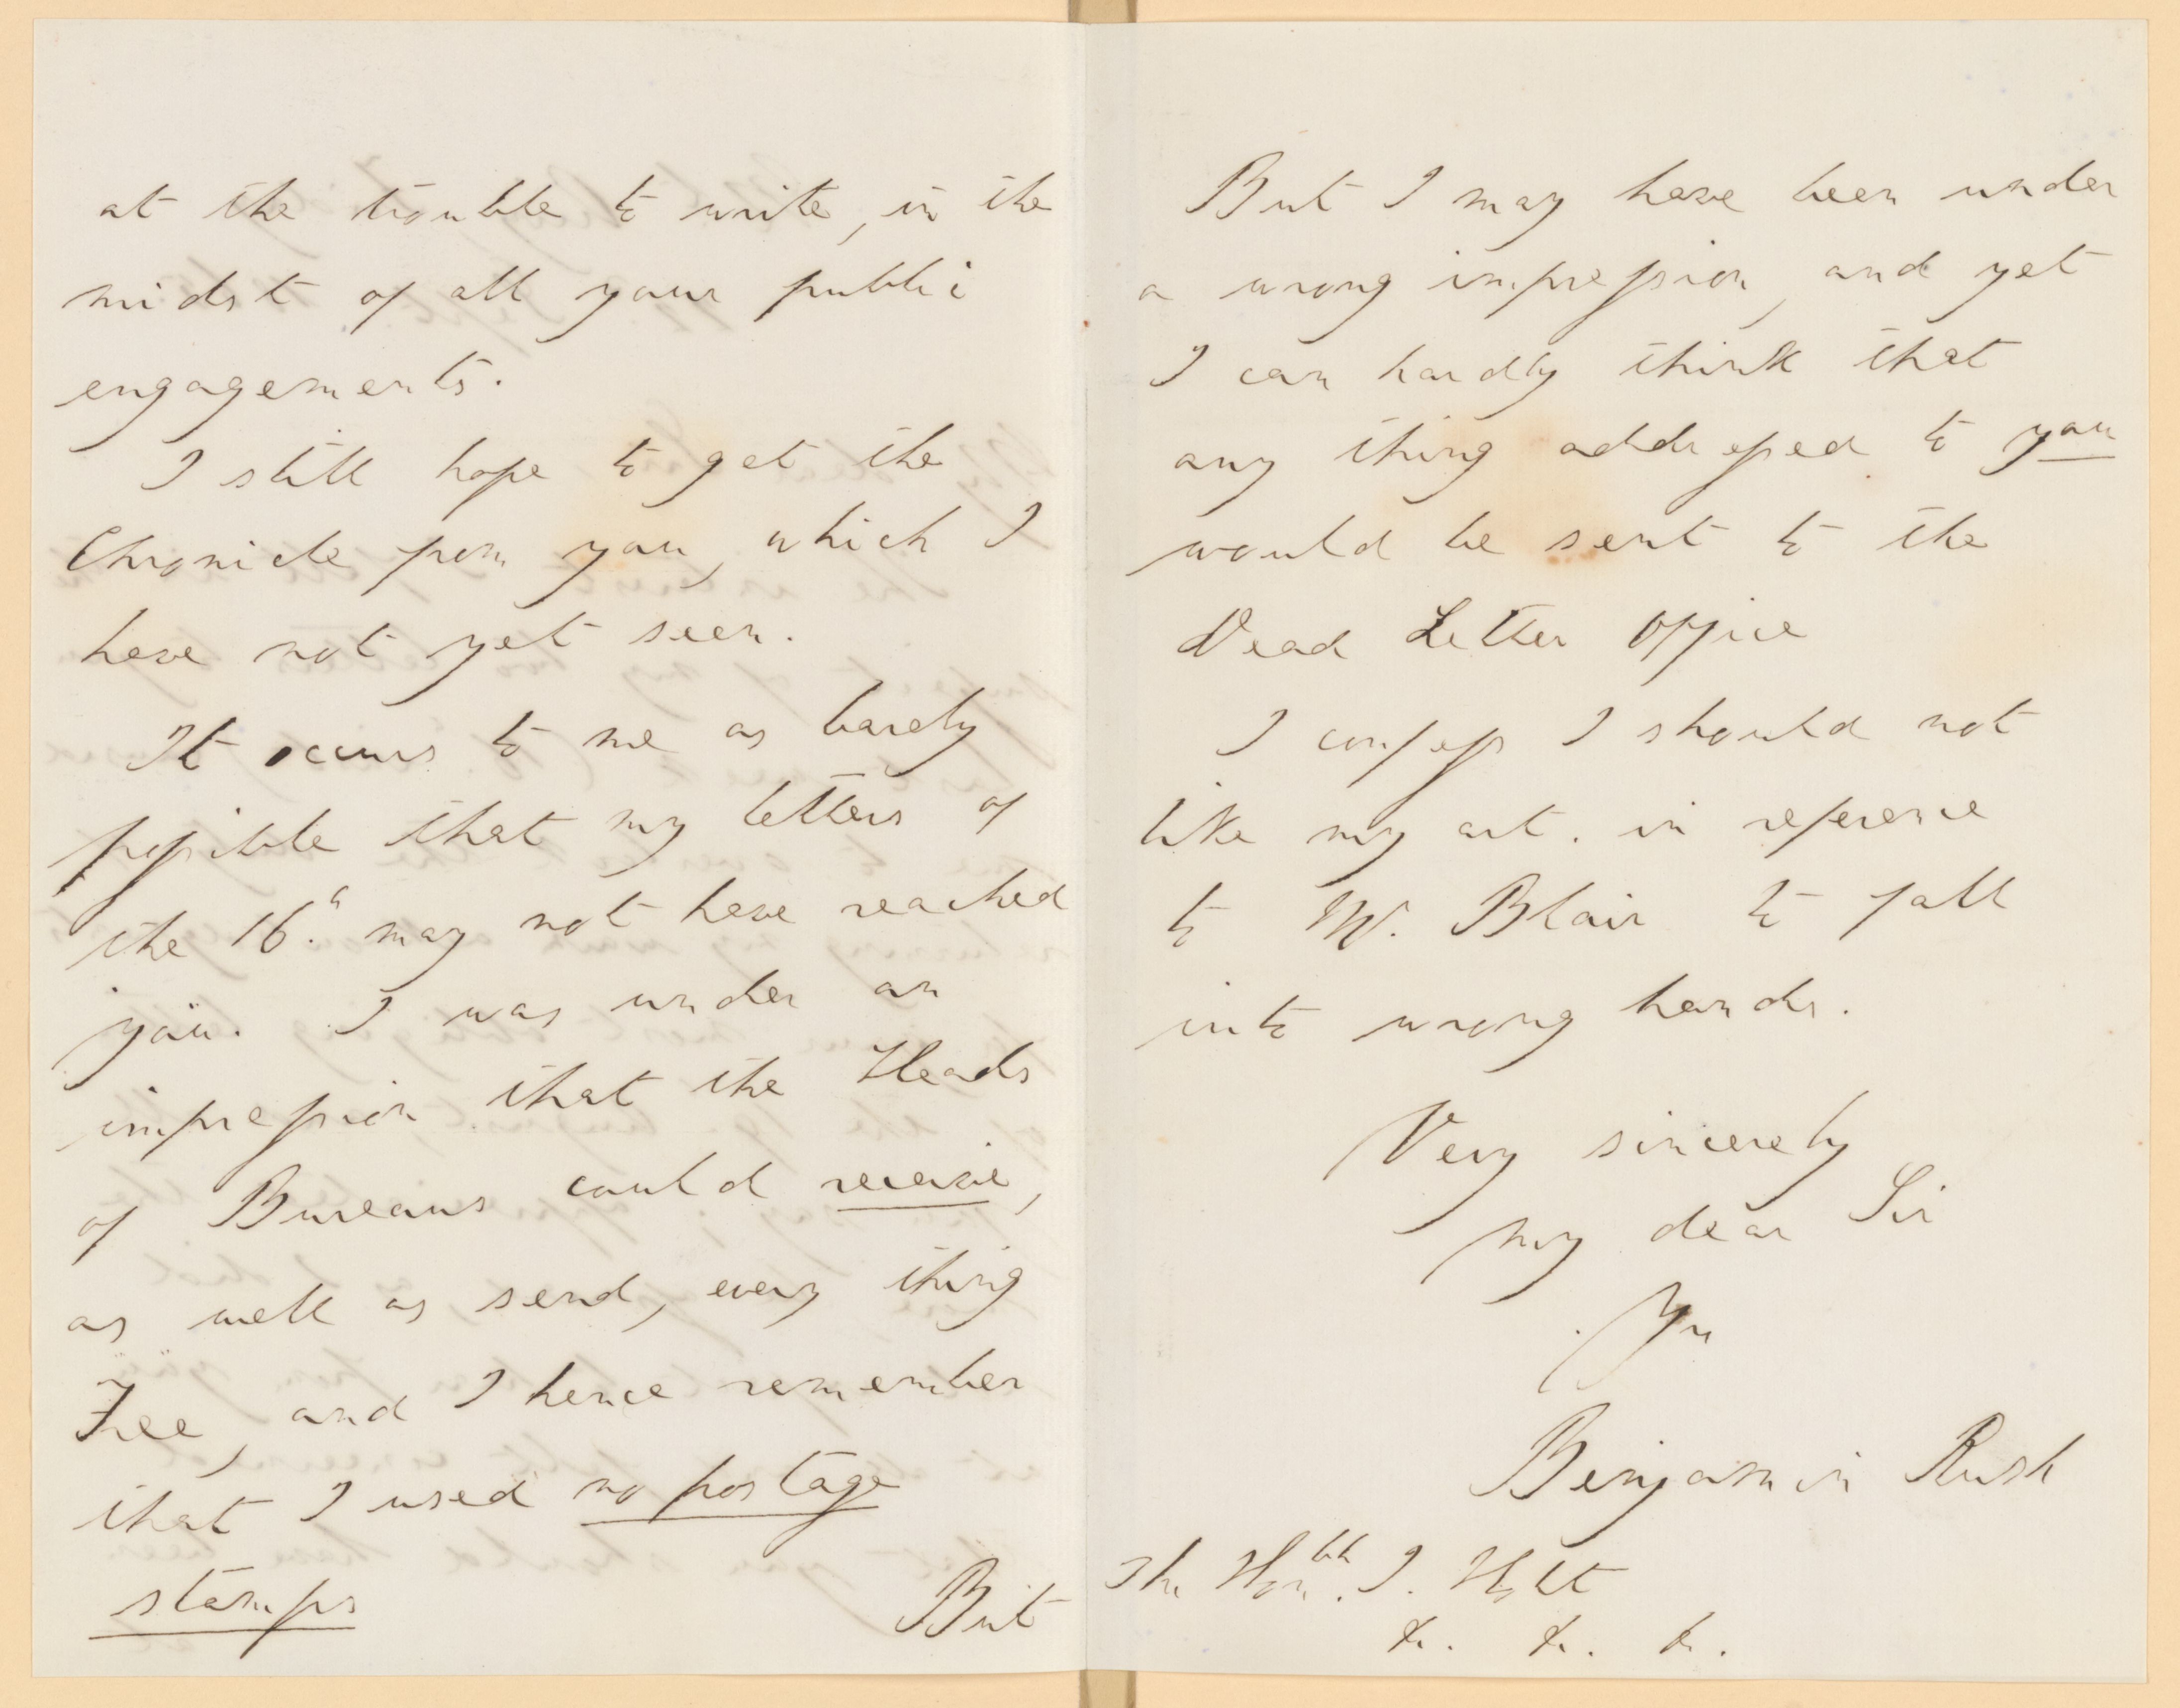 at the trouble to write, in the
midst of all your public
engagements.
I still hope to get the
Chronicle from you, which I
have not yet seen.
It occurs to me as barely
possible that my letters of
the 16.th may not have reached
you. I was under an
impression that the Heads
of Bureaus could receive,
as well as send, every thing
Free, and I hence remember
that I used no postage
stamps
But
But I may have been under
a wrong impression, and yet
I can hardly think that
any thing addressed to you
would be sent to the
Dead Letter Office
I confess I should not
like my art. in reference
to Mr. Blair to fall
into wrong hands.
Very sincerely
my dear Sir
Yrs
Benjamin Rush
The Honble. J. Holt
&c. &c. &c.